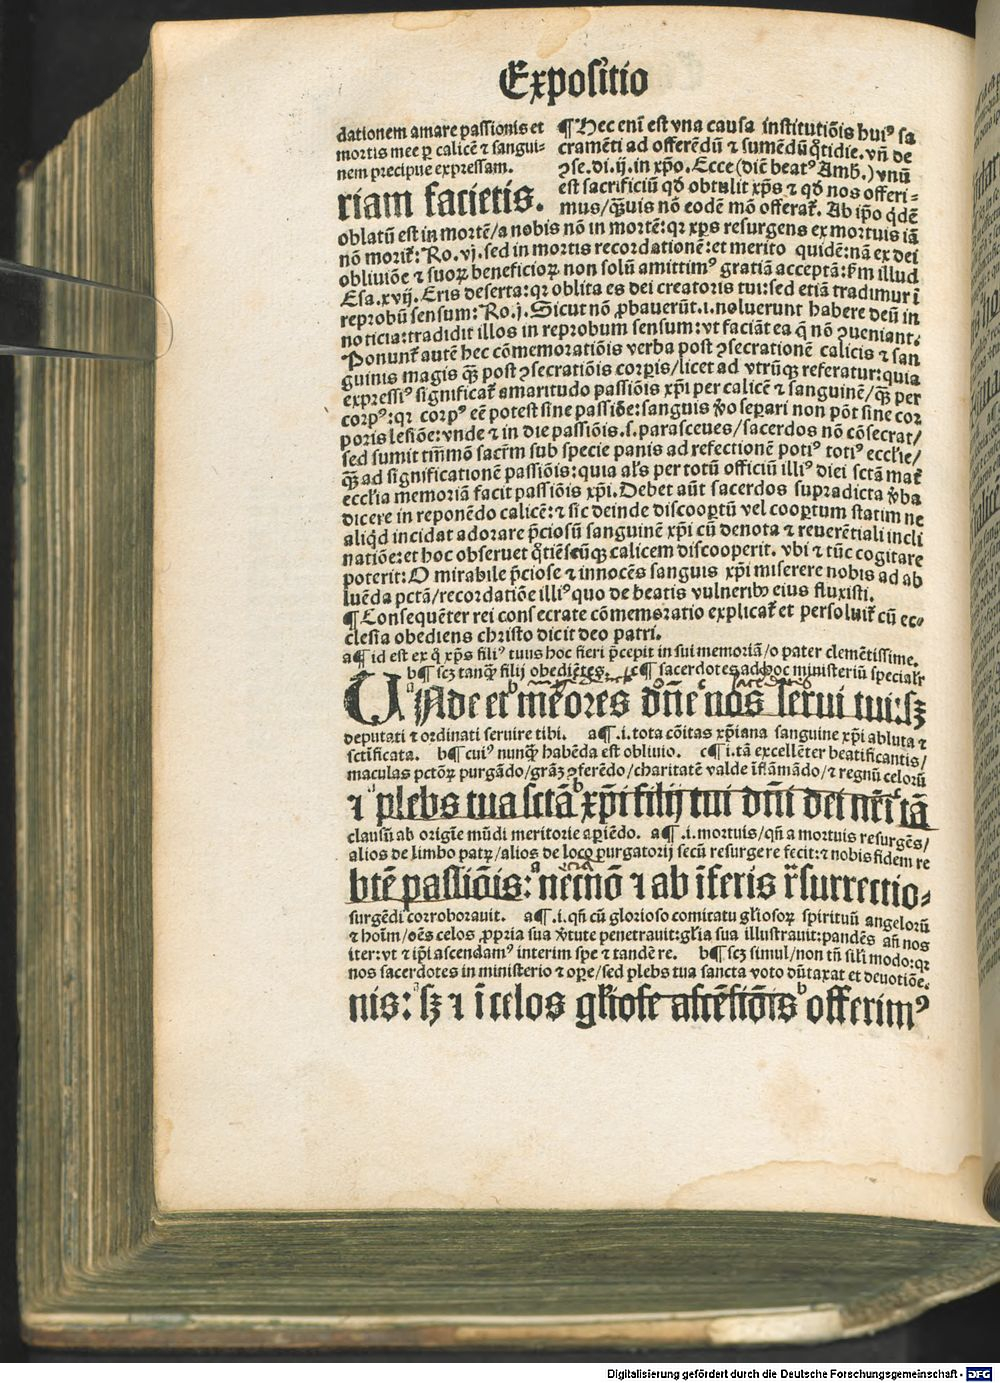 Expositio
dationem amare passionis et
mortis mee ꝑ calicē ⁊ sangui⸗
nem precipue expressam.
riam facietis.
¶ Hec eni̅ est vna causa institutiōis huiꝰ sa
cramēti ad offerēdū ⁊ sumēdū q̄tidie. vn̄ de
ꝯse. di. ij. in xp̄o. Ecce (dic̄ beatꝰ Amb.) vnū
est sacrificiū qd̄ obtulit xp̄s ⁊ qd̄ nos offeri⸗
mus/quis nō eodē mō offerat̄. Ab ip̄o qd̄ē
oblatū est in mortē/a nobis nō in mortē: qꝛ xp̄s resurgens ex mortuis iā
nō morit̄: Ro. vj. sed in mortis recordationē: et merito quidē: nā ex dei
obliuiōe ⁊ suoꝝ beneficioꝝ non solū amittimꝰ gratiā acceptā: km̄ illud
Esa. xvij. Eris deserta: qꝛ oblita es dei creatoris tui: sed etiā tradimur ī
reprobū sensum: Ro. j. Sicut nō ꝓbauerūt .i. noluerunt habere deū in
noticia: tradidit illos in reprobum sensum: vt faciāt ea q̄ nō ꝯueniant.
Ponunt̄ autē hec cōmemoratiōis verba post ꝯsecrationē calicis ⁊ san
guinis magis qȝ post ꝯsecratiōis corꝑis/licet ad vtrūqȝ referatur: quia
expressiꝰ significat̄ amaritudo passiōis xp̄i per calicē ⁊ sanguinē/qȝ per
corpꝰ: qꝛ corpꝰ eē potest sine passiōe: sanguis ṽo seꝑari non pōt sine cor
poris lesiōe: vnde ⁊ in die passiōis .s. parasceues/sacerdos nō cōsecrat/
sed sumit tm̄mō sacr̄m sub specie panis ad refectionē potiꝰ totiꝰ eccl̄ie/
qȝ ad significationē passiōis: quia al̄s per totū officiū illiꝰ diei sctā mat̄
eccl̄ia memoriā facit passiōis xp̄i. Debet aūt sacerdos supradicta ṽba
dicere in reponēdo calicē: ⁊ sic deinde discooꝑtū vel cooꝑtum statim ne
aliqd̄ incidat adorare p̄ciosū sanguinē xp̄i cū deuota ⁊ reuerētiali incli
natiōe: et hoc obseruet q̄tiēscūqȝ calicem discooperit. vbi ⁊ tūc cogitare
poterit: O mirabile p̄ciose ⁊ innocēs sanguis xp̄i miserere nobis ad ab
luēda pctā/recordatiōe illiꝰ quo de beatis vulneribꝰ eius fluxisti.
¶ Consequēter rei consecrate cōmemoratio explicat̄ et persoluit̄ cū ec⸗
clesia obediens christo dicit deo patri.
a¶ id est ex q̄ xp̄s filiꝰ tuus hoc fieri p̄cepit in sui memoriā/o pater clemētissime.
b¶ scȝ tanqȝ filij obediētes. c¶ sacerdotes ad hoc ministeriū specialr̄
sacerdotes
UNde et mēores dn̄e nos serui tui: sȝ
deputati ⁊ ordinati seruire tibi. a¶ .i. tota cōitas xp̄iana sanguine xp̄i abluta ⁊
sctīficata. b¶ cuiꝰ nunqȝ habēda est obliuio. c¶ i. tā excellēter beatificantis/
maculas pctōꝝ purgādo/gr̄aȝ ꝯferēdo/charitatē valde īflāmādo/⁊ regnū celorū
⁊ plebs tua sctā xp̄i filij tui dn̄i dei nr̄i tā
clausū ab origīe mūdi meritorie aꝑiēdo. a¶ .i. mortuis/qn̄ a mortuis resurgēs/
alios de limbo patꝝ/alios de loco purgatorij secū resurgere fecit: ⁊ nobis fidem re
btē passiōis: necnō ⁊ ab īferis r̄surrectio⸗
surgēdi corroborauit. a¶ .i. qn̄ cū glorioso comitatu gl̄iosoꝝ spirituū angelorū
⁊ hoīm/oēs celos ꝓpria sua ṽtute penetrauit: gl̄ia sua illustrauit: pandēs añ nos
iter: vt ⁊ ip̄i ascendamꝰ interim spe ⁊ tandē re. b¶ scȝ simul/non tn̄ sil̄i modo: qꝛ
nos sacerdotes in ministerio ⁊ oꝑe/sed plebs tua sancta voto dūtaxat et deuotiōe.
nis: sȝ ⁊ ī celos gl̄iose ascēsiōis offerimꝰ
Digitalisierung gefördert durch die Deutsche Forschungsgemeinschaft - DFG